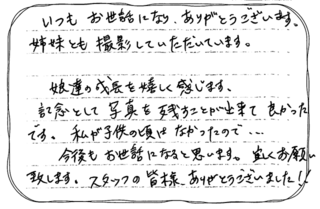 いつも お世話になり、ありがとうございます。
姉妹とも 撮影していただいています。
娘達の成長を嬉しく感じます。
記念として 写真を 残すことが出来て 良かった
です。 私が子供の頃は なかったので…
今後も お世話になると思います。 宜しくお願い
致します。 スタッフの皆様、ありがとうございました!!